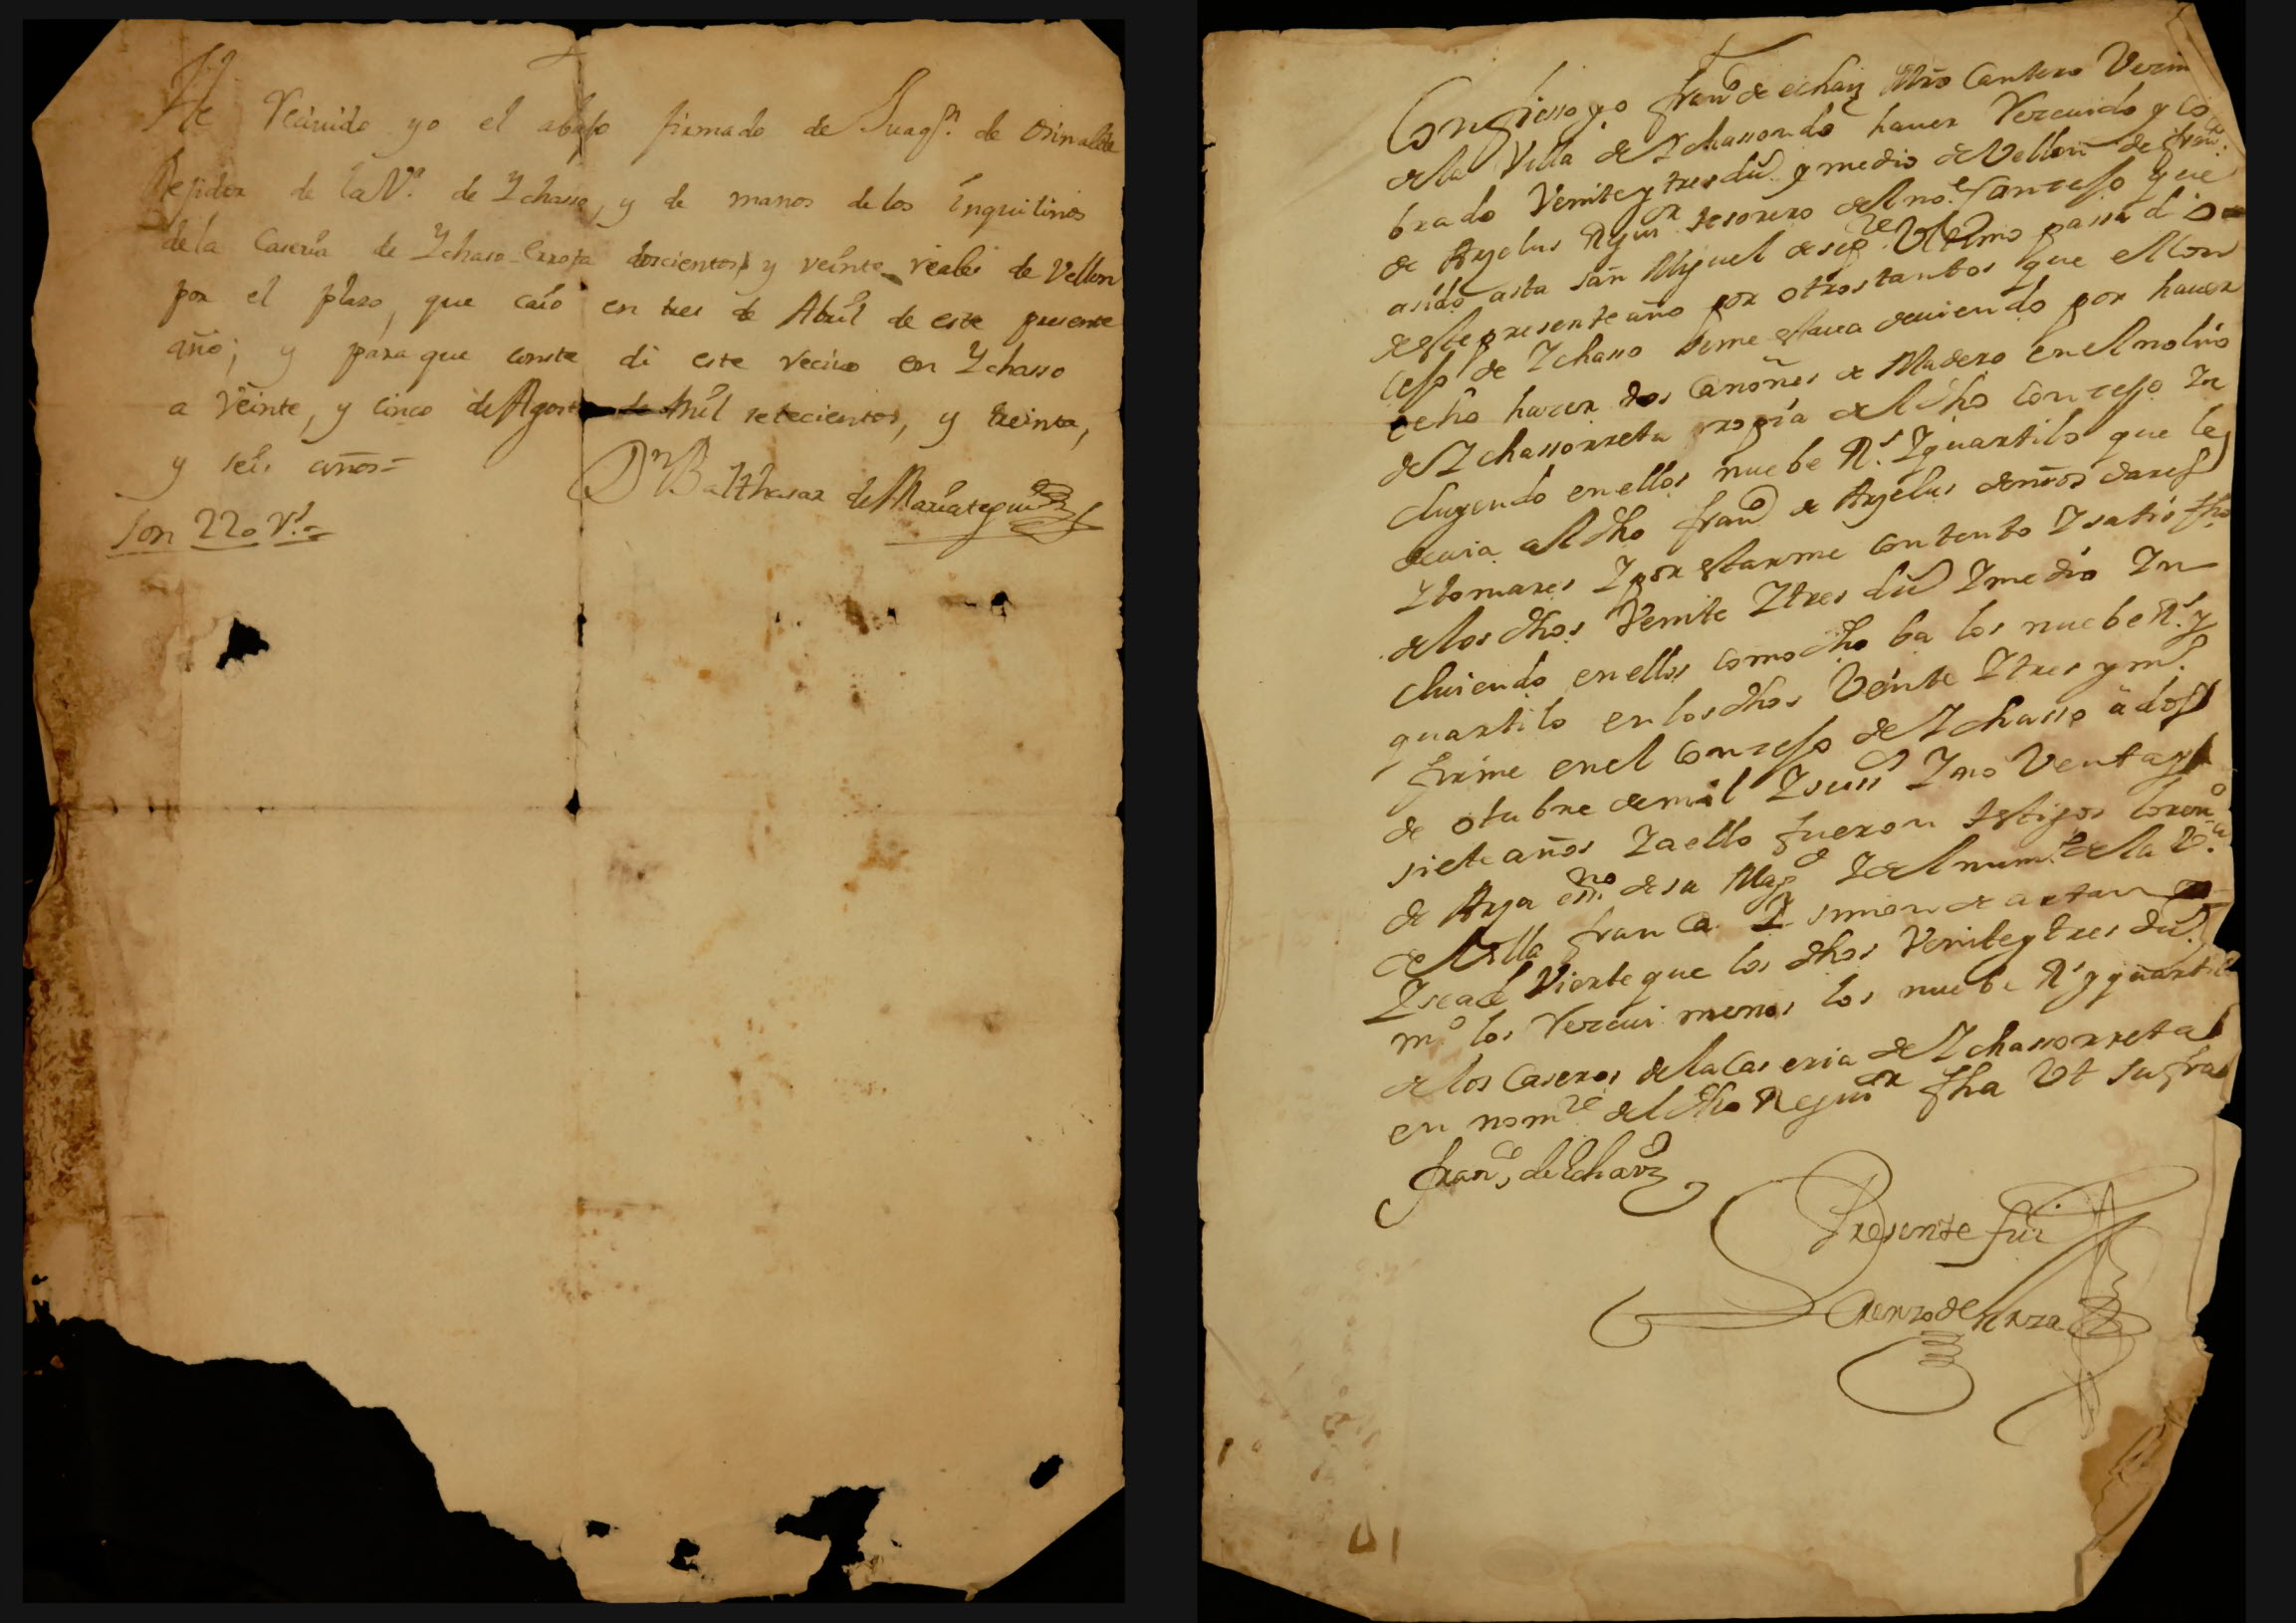 He Reciuido yo el abajo firmado de Juaqⁿ. de Osinalde
Rejidor de la Vᵃ. de Ychasso, y de manos de los inquilinos
de la Caseria de Ychaso-Errota doscientos y veinte reales de Vellon
por el plazo, que caio en tres de Abril de este presente
año; y para que conste di este reciuo en Ychasso
a veinte, y cinco de Agosto de Mil setecientos, y treinta,
y seis años=
Dⁿ Balthasar de Mariategui
Son 220 rˢ.=
Confiesso yo franᶜᵒ de echaiz Mro Cantero Vezin
de la Villa de Ychassondo hauer Rezeuido y co
brado Veinte y tres duˢ y medio de Vellon de franᶜᵒ.
de Ayelus Rejidᵒʳ tesorero del noᵉ. Conzejo que
a sido asta san Miguel de sepʳᵉ. Vltimo passado
de este presente año por otros tantos que el Con
cejo de Ychasso se me estaua deuiendo por hauer
echo hazer dos Cañones de Madero en el molino
de Ychassorreta propia del dho Conzejo In
cluyendo en ellos nuebe Rˢ. Y quartilo que le
deuia al dho franᶜᵒ de Ayelus de nros dares
Y tomares Y por estarme contento Y satisfho
de los dhos Veinte Y tres duˢ Y medio In
cluiendo en ellos como dho ba los nuebe Rˢ. y
quartilo en los dhos Veinte Y tres y mᵒ.
firme en el Conzejo de Ychasso a dos
de otubre de mil Y seissᵒˢ Y no Venta y
siete años Y a ello fueron testigos lorenᶜᵒ
de Arza essⁿᵒ de su Magᵈ Y del numᵒ de la Vᵃ.
de Villa franca Y simon de
Y se adVierte que los dhos Veinte y tres duˢ.
mᵒ los Rezeui menos los nuebe Rˢ y quartilo
de los Caseros de la Caseria de Ychassorreta
en nomʳᵉ del dho Rejidᵒʳ fha Vt supra
franᶜᵒ de Echaiz
Presente fui
Lorenzo de Arza